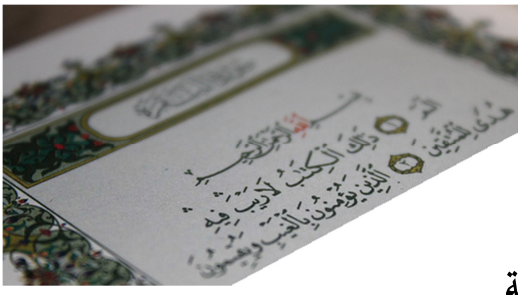 سورة البقرة
بسم الله الرحمن الرحيم
الم ١ ذلك الكتب لا ريب فيه
هدى للمتقين ٢ الذين يؤمنون بالغيب ويقيمون
ة